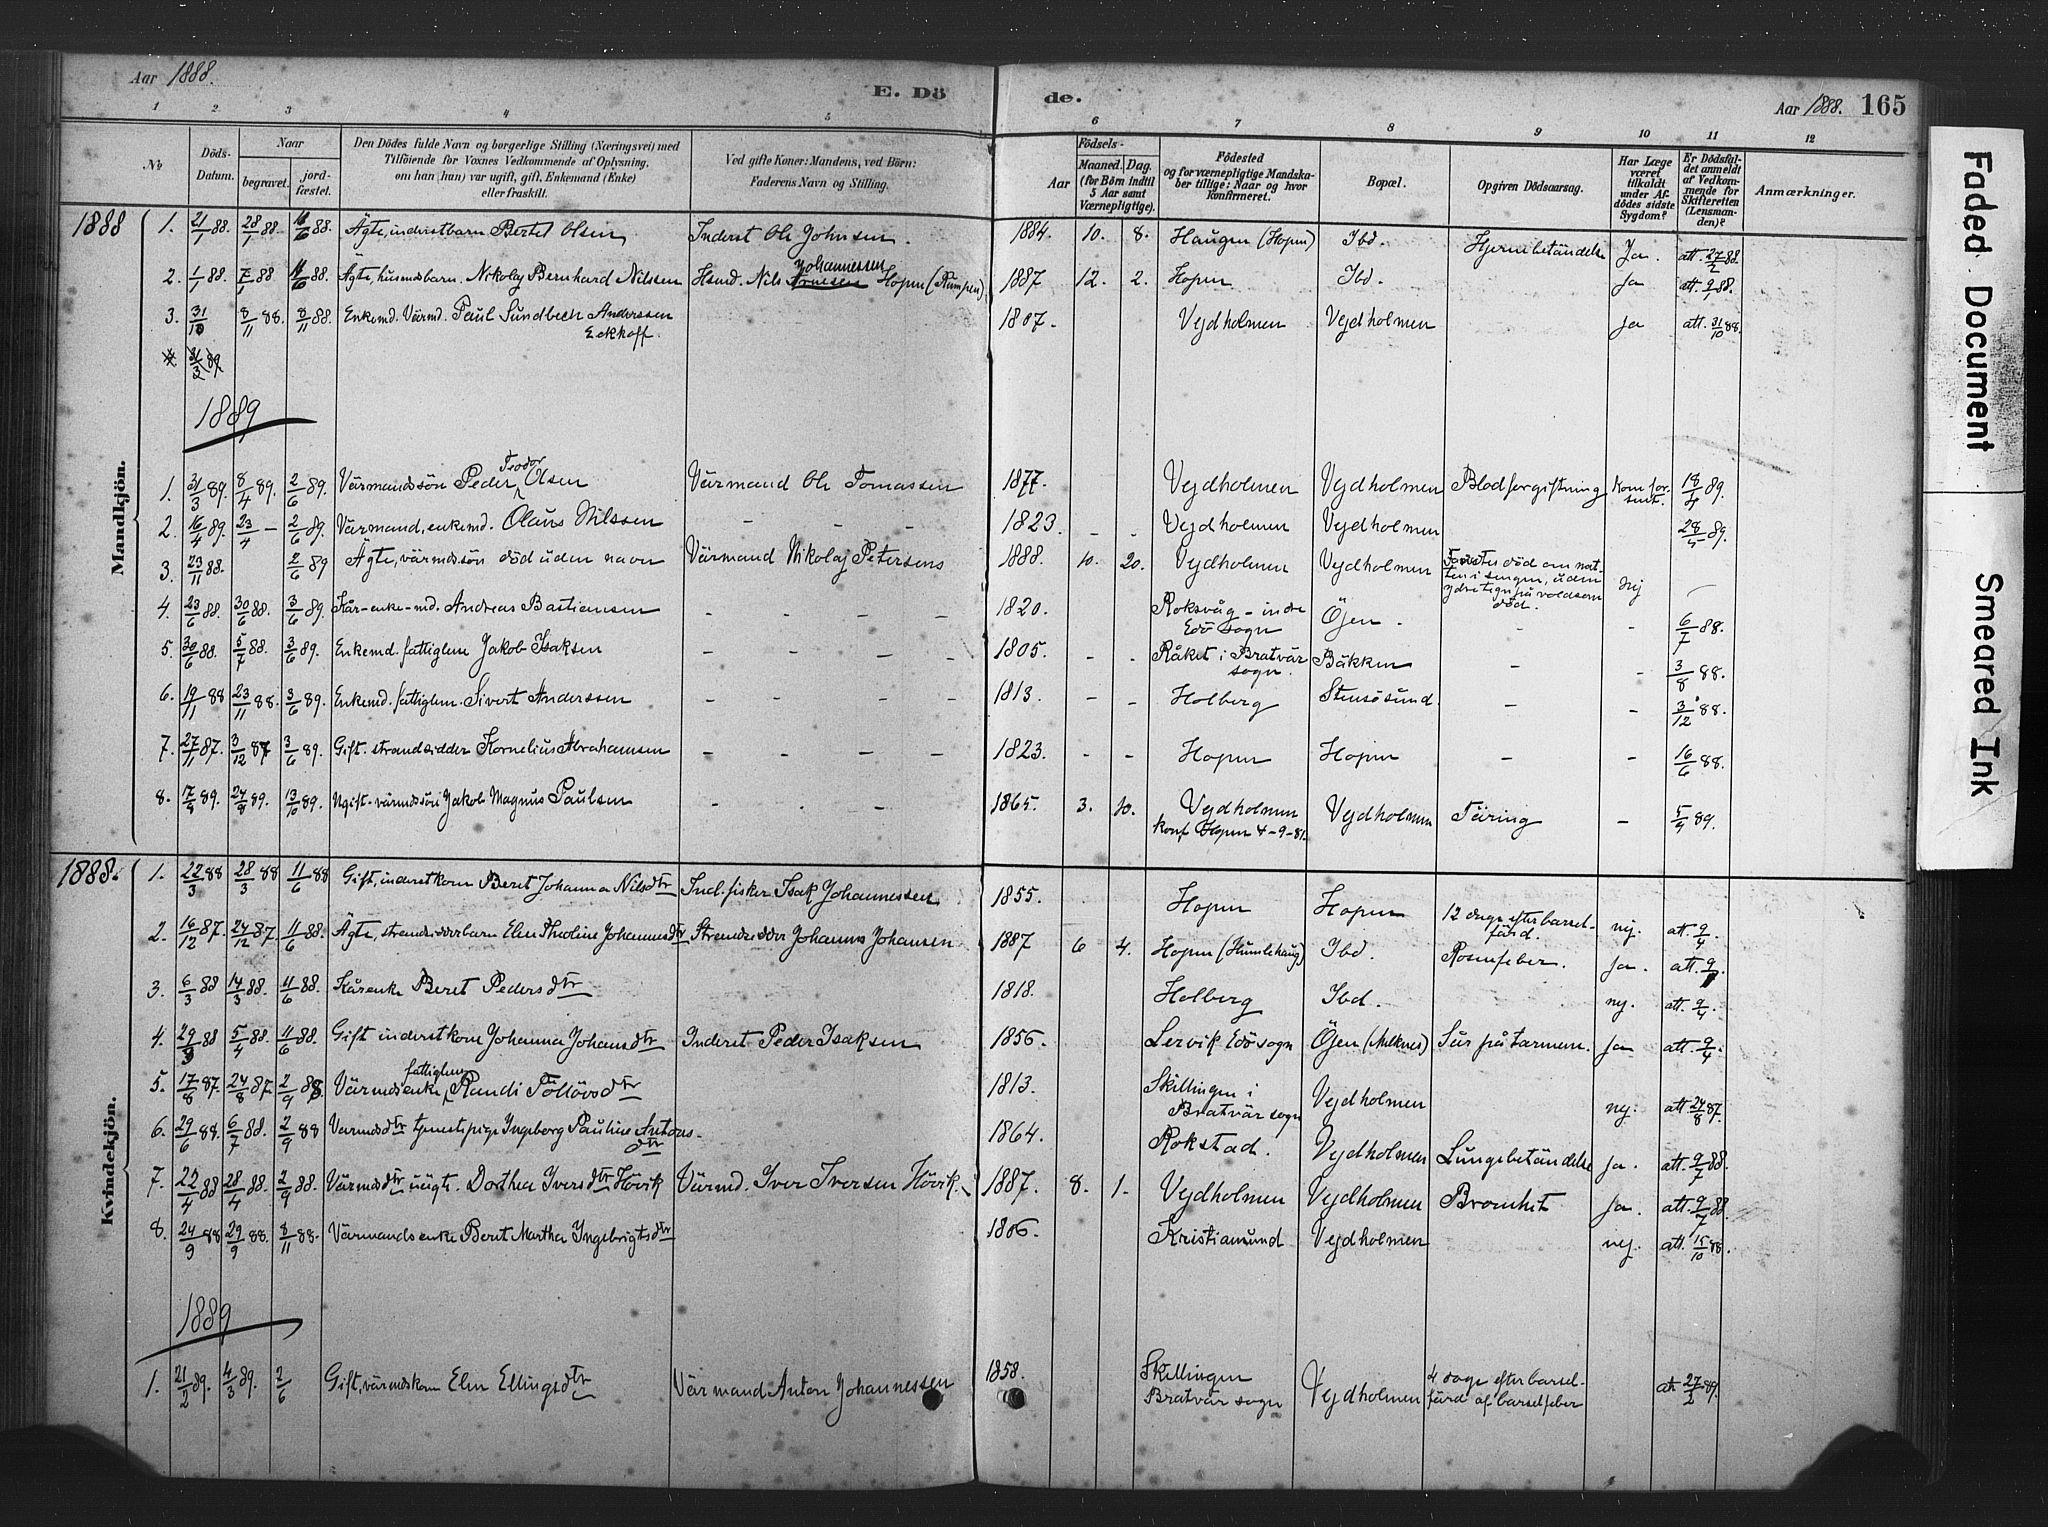 Aar 1888.
E. Dö
de.
Aar 1888. 165
1 2 3 4 5 6 7 8 9 10 11 12
No
Döds-Datum.
Naar
begravet.
jord-fæstet.
Den Dödes fulde Navn og borgerlige Stilling (Næringsvei) med
Tilföiende for Voxnes Vedkommende af Oplysning,
om han (hun) var ugift, gift, Enkemand (Enke)
eller fraskilt.
Ved gifte Koner: Mandens, ved Börn:
Faderens Navn og Stilling.
Födsels-
Aar
Maaned. Dag.
(for Börn indtil
5 Aar samt
Værnepligtige).
Födested
og for værnepligtige Mandska-
ber tillige: Naar og hvor
konfirmeret.
Bopæl.
Opgiven Dödsaarsag.
Har Læge
været
tilkaldt
under Af-
dödes sidste
Sygdom?
Er Dödsfal-
det anmeldt
af Vedkom-
mende for
Skifteretten
(Lensman-
den)?
Anmærkninger.
Mandkjön.
1888
1. 21/1 88. 28/1 88. 11/6 88. Ägte, inderstbarn Bertel Olsen Inderst Ole Johnsen. 1884. 10. 8. Haugen (Hopen) Ibd. Hjernebetändelse Ja. att. 27/2 88.
2. 1/1 88. 7/1 88 11/6 88. Ägte, husmdsbarn, Nikolay Bernhard Nilssen Hsmd. Nils Johannessen Hopen (Rumpen) 1887 12. 2. Hopen Ibd. Ja att. 9/1 88.
3. 31/10 8/11 88. 8/11 88. Enkemd. Värmd. Paul Sundbech Anderssen
Eckhoff. 1807. Vejdholmen Vejdholmen Ja att. 31/10 88.
31/3 89
1889
1. 31/3 89. 8/4 89. 2/6 89. Värmandssön Peder Teodor Olsen Värmand Ole Tomassen 1877. - - Vejdholmen Vejdholmen Blodforgiftning Kom for-
sent. 89.
2. 16/4 89. 23/4 - 2/6 89. Värmand, enkemd. Olaus Nilssen - - - 1823. - - Vejdholmen Vejdholmen 89.
3. 23/11 88. 2/6 89 Ägte, värmdssön död uden navn Värmand Nikolaj Petersens 1888. 10. 20. Vejdholmen Vejdholmen død om nat-
ten i sengen, uden
ydre tegn på voldsom
död. nej -
4. 23/6 88. 30/6 88. 3/6 89. Kår-enke-md. Andreas Bastiansen - - - - 1820. Roksvåg - indre
Edö sogn Öjen. - - 6/7 88.
5. 30/6 88. 5/7 88. 3/6 89. Enkemd. fattiglem Jakob Isaksen - - - - 1805. - - Råket i Bratvär
sogn. Bäkken - - 3/8 88.
6. 19/11 88 23/11 88. 3/6 89. Enkemd. fattiglem. Sivert Anderssen - - - - 1813. - - Holberg Stensösund. - - 3/12 88.
7. 27/11 87. 3/12 87 3/6 89. Gift. strandsidder Kornelius Abrahamsen - - - - 1823. - - Hopen Hopen - - 16/6 88.
8. 89. 89. 13/10 89. Ugift-värmdssön Jakob Magnus Paulsen - - - 1865. 3. 10. Vejdholmen
konf. Hopen 4-9-81. Vejdholmen Täring - 89.
Kvindekjön.
1888.
1. 22/3 88 28/3 88 11/6 88 Gift, inderstkone Beret Johanna Nilsdtr Ind. fisker Isak Johannessen 1855. Hopen Hopen 12 dage efter barsel-
färd. nej. att. 9/4.
2. 16/12 87. 24/12 87. 11/6 88. Ägte, strandsidderbarn Elen Theoline Johannesdtr Strandsidder Johannes Johansen. 1887 6 4. Hopen (Humlehaug) Ibd. Rosenfeber. Ja. att. 9/1.
3. 6/3 88 14/3 88. 11/6 88. Kårenke Beret Pedersdtr 1818. Holberg Ibd. nej. att. 9/4
4. 29/3 88 5/4 88. 11/6 88. Gift inderstkone Johanna Johansdtr Inderst Peder Isaksen 1856. Lervik Edö sogn Öjen (Melknes) Sår på tarmen. Ja att. 9/4.
5. 17/8 87. 24/8 87. 2/9 88. Värmdsenke, fattiglem Randi Tollövsdtr 1813. Skillingen i
Bratvär sogn Vejdholmen nej. att. 24/8 87.
6. 29/6 88. 6/7 88. 2/9 88 Värmdsdtr tjenestepige Ingeborg Pauline Antons-
dtr 1864. Rokstad. Vejdholmen Lungebetändelse Ja. att. 9/7 88.
7. 22/4 88 28/4 88. 2/9 88. Värmdsdtr uägt. Dorthea Iversdtr Hövik Värmd. Iver Iversen Hövik. 1887. 8. 1. Vejdholmen Vejdholmen Bronkit Ja. att. 9/7 88.
8. 24/9 88 29/9 88. 8/11 88. Värmandsenke Berit Martha Ingebrigtsdtr 1806. Kristiansund Vejdholmen nej. att. 15/10 88.
1889
1. 21/2 89. 4/3 89. 2/6 Gift, värmdskone Elen Ellingsdtr Värmand Anton Johannessen 1858. Skillingen
Bratvär sogn Vejdholmen 4 dage efter barsel-
färd af barselfeber att. 27/2 89
Faded Document
Smeared Ink